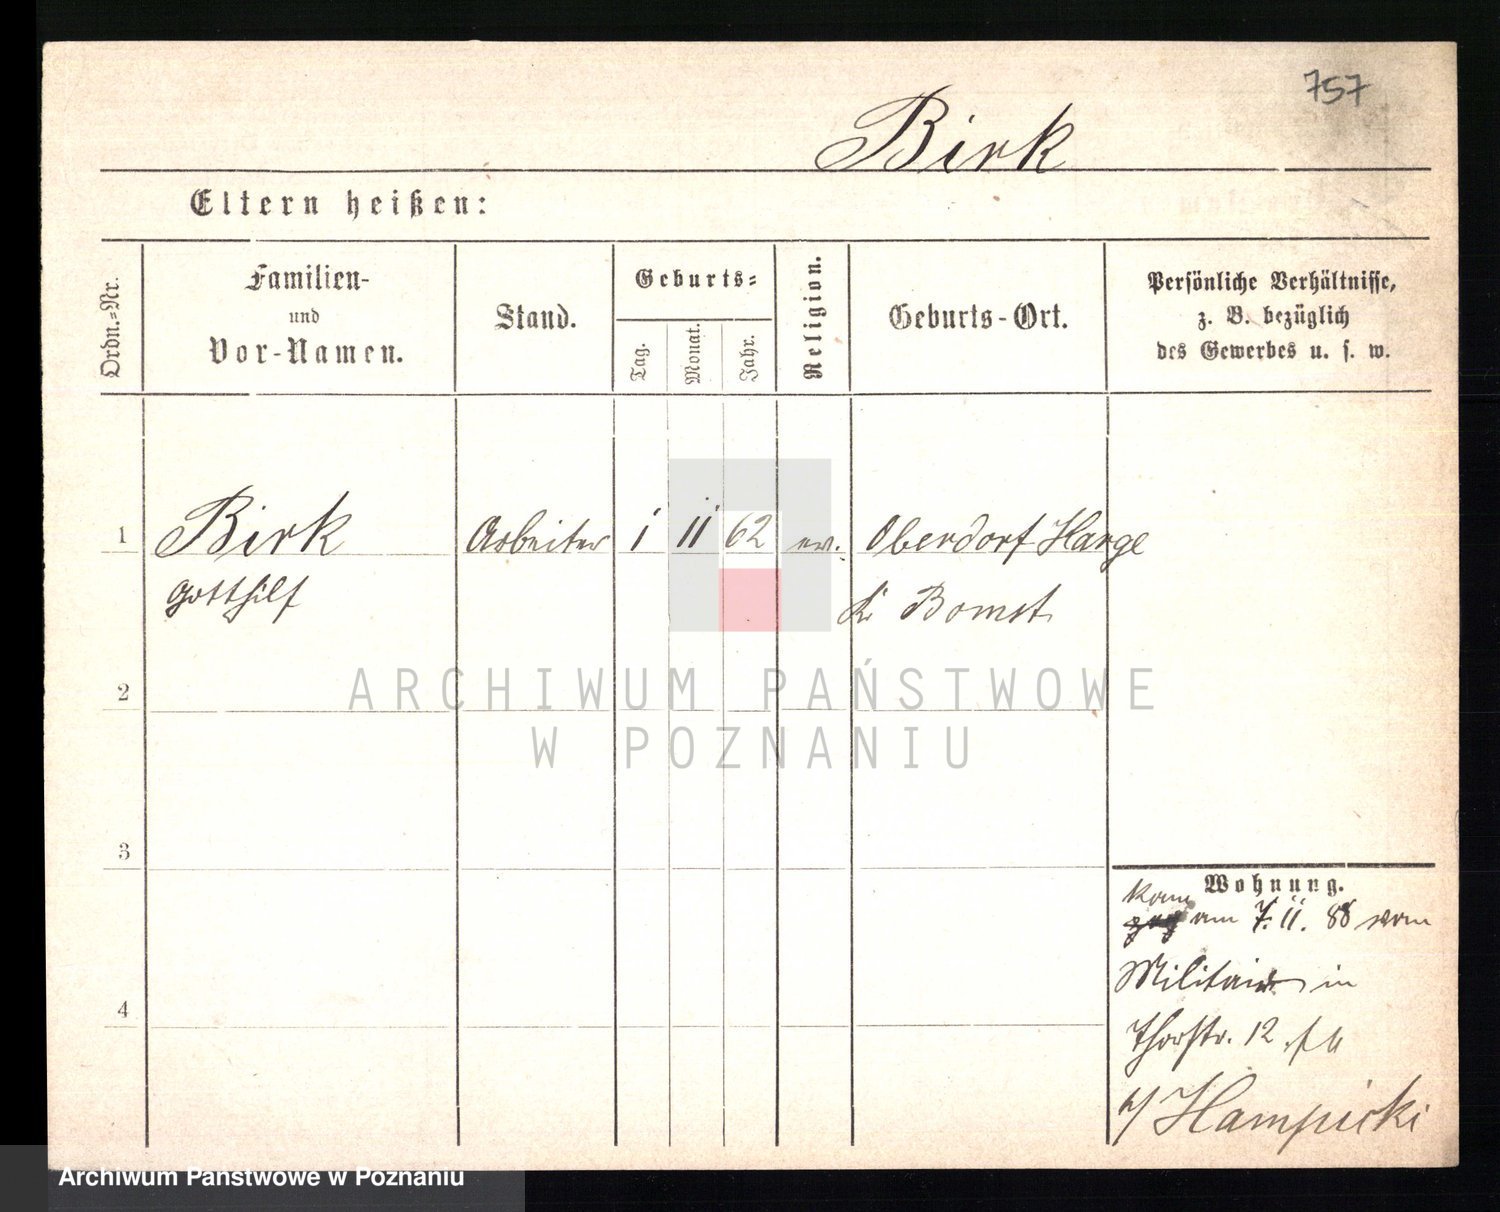 757
Birk
Eltern heißen:
Ordn.=Nr.
Familien-
und
Vor-Namen.
Stand.
Geburts=
Tag.
Monat.
Jahr.
Religion.
Geburts-Ort.
Persönliche Verhältnisse,
z. B. bezüglich
des Gewerbes u. s. w.
1 Birk Arbeiter 1 11 62 ev. Oberdorf Harge
Gotthilf Kr Bomst
ARCHIWUM PAŃSTWOWE
W POZNANIU
2
3
4
Wohnung.
kam
am 7. 11. 88 vom
Militair in
Thorstr. 12
b/ Hampicki
Archiwum Państwowe w Poznaniu